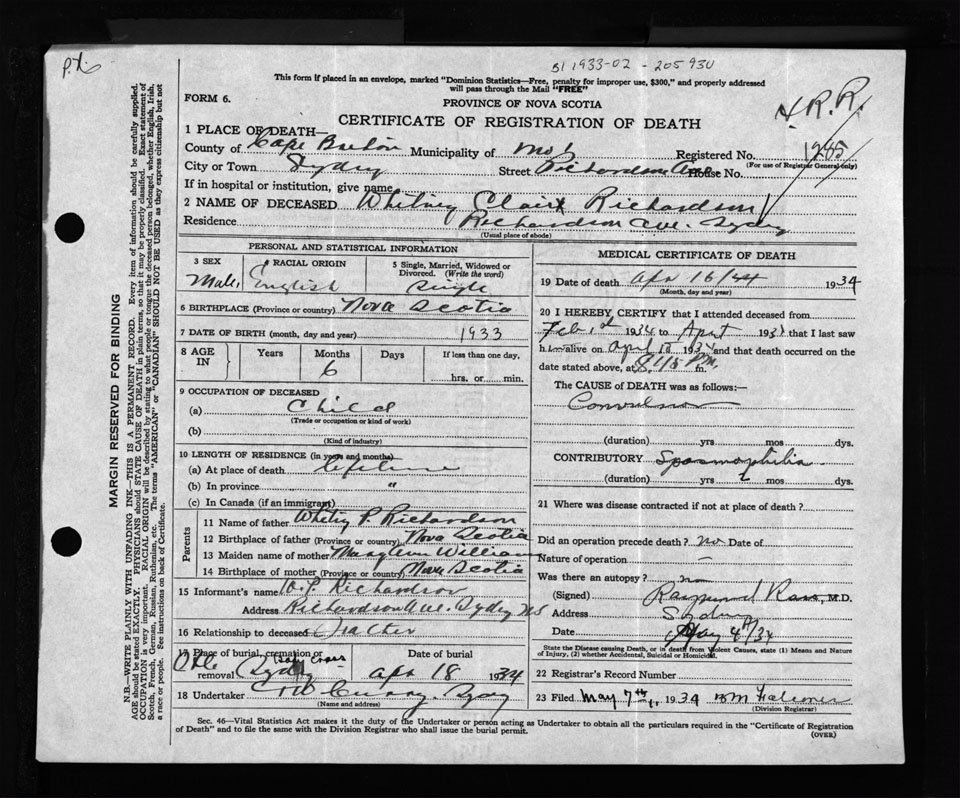 B1 1933-02 - 205930
This form if placed in an envelope, marked "Dominion Statistics—Free, penalty for improper use, $300," and properly addressed
will pass through the Mail "FREE"
FORM 6.
PROVINCE OF NOVA SCOTIA
CERTIFICATE OF REGISTRATION OF DEATH
R.R.
1 PLACE OF DEATH—
County of Cape Breton Municipality of Registered No. 1245
(For use of Registrar General only)
City or Town Sydney Street Richardson Ave House No.
If in hospital or institution, give name
2 NAME OF DECEASED Whitney Clair Richardson
Residence Richardson Ave. Sydney
(Usual place of abode)
PERSONAL AND STATISTICAL INFORMATION
3 SEX Male
4 RACIAL ORIGIN English
5 Single, Married, Widowed or Divorced. (Write the word) Single
6 BIRTHPLACE (Province or country) Nova Scotia
7 DATE OF BIRTH (month, day and year) 1933
8 AGE IN Years Months 6 Days If less than one day, hrs. or min.
9 OCCUPATION OF DECEASED
(a) Child
(Trade or occupation or kind of work)
(b)
(Kind of industry)
10 LENGTH OF RESIDENCE (in years and months)
(a) At place of death lifetime
(b) In province "
(c) In Canada (if an immigrant)
Parents
11 Name of father Whitney P. Richardson
12 Birthplace of father (Province or country) Nova Scotia
13 Maiden name of mother Williams
14 Birthplace of mother (Province or country) Nova Scotia
15 Informant's name Richardson
Address Richardson Ave. Sydney NS
16 Relationship to deceased
17 Place of burial, cremation or removal Sydney
Date of burial Apr 18 1934
18 Undertaker Sydney
(Name and address)
MEDICAL CERTIFICATE OF DEATH
19 Date of death Apr 16/34 1934
(Month, day and year)
20 I HEREBY CERTIFY that I attended deceased from
Feb 1934 to 193 that I last saw
h alive on April 1934 and that death occurred on the
date stated above, at 8.15 P.M. m.
The CAUSE of DEATH was as follows:—
Convulsion
(duration) yrs. mos. dys.
CONTRIBUTORY Spasmophilia
(duration) yrs. 2 mos. dys.
21 Where was disease contracted if not at place of death?
Did an operation precede death? no Date of
Nature of operation —
Was there an autopsy? no
(Signed) Raymond Ross, M.D.
Address Sydney
Date May 4/34
State the Disease causing Death, or in death from Violent Causes, state (1) Means and Nature of Injury, (2) whether Accidental, Suicidal or Homicidal.
22 Registrar's Record Number
23 Filed May 7th, 1934
(Division Registrar)
Sec. 46—Vital Statistics Act makes it the duty of the Undertaker or person acting as Undertaker to obtain all the particulars required in the "Certificate of Registration
of Death" and to file the same with the Division Registrar who shall issue the burial permit.
(OVER)
MARGIN RESERVED FOR BINDING
N.B.—WRITE PLAINLY WITH UNFADING INK—THIS IS A PERMANENT RECORD. Every item of information should be carefully supplied.
AGE should be stated EXACTLY. PHYSICIANS should STATE CAUSE OF DEATH in plain terms, so that it may be properly classified. Exact statement of
OCCUPATION is very important. RACIAL ORIGIN will be described by stating to what people or tongue the deceased person belonged, whether English, Irish,
Scotch, French, German, Russian, Ruthenian, etc. The terms "AMERICAN" or "CANADIAN" SHOULD NOT BE USED as they express citizenship but not
a race or people. See instructions on back of Certificate.